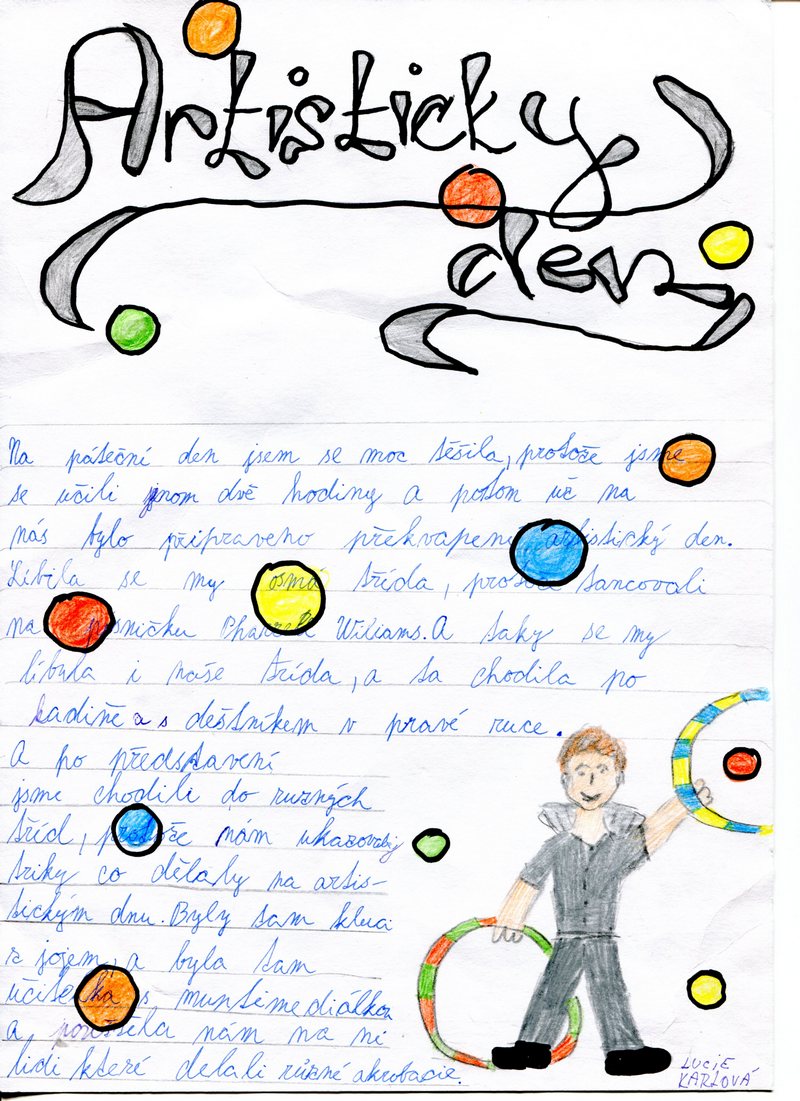 Artisticky
den
Na páteční den jsem se moc těšila, protože jsme
se učili jnom dvě hodiny a potom uč na
nás bylo připraveno překvapení artistický den.
Líbila se my osmá třída, protože tancovali
na písničku Wiliams. A taky se my
líbyla i naše třída, a ta chodila po
kadině a s deštníkem v pravé ruce.
A po představení
jsme chodili do ruzných
tříd, protože nám ukazovaly
triky co dělaly na artis-
tickým dnu. Byly tam kluci
z jojem, a byla tam
učitelka s muntimediálkou
a pouštěla nám na ní
lidi které delali různé akrobacie.
LUCIE
KARLOVÁ